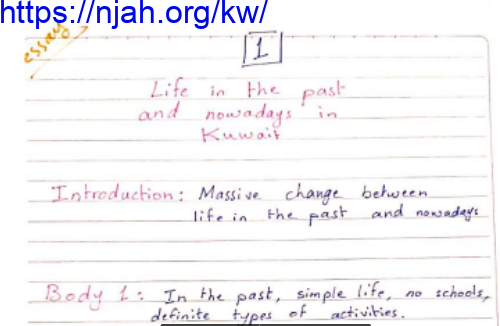 https://njah.org/kw/
essay
1
Life in the past
and nowadays in
Kuwait
Introduction: Massive change between
life in the past and nowadays
Body 1: In the past, simple life, no schools,
definite types of activities.